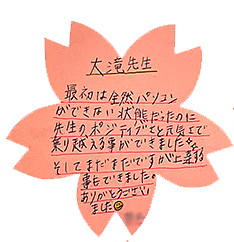 大滝先生
最初は全然パソコン
ができない状態だったのに
先生のポジティブさと元気さで
乗り越える事ができました。
そしてまだまだですが上達する
事もできました。
ありがとうござい
ました